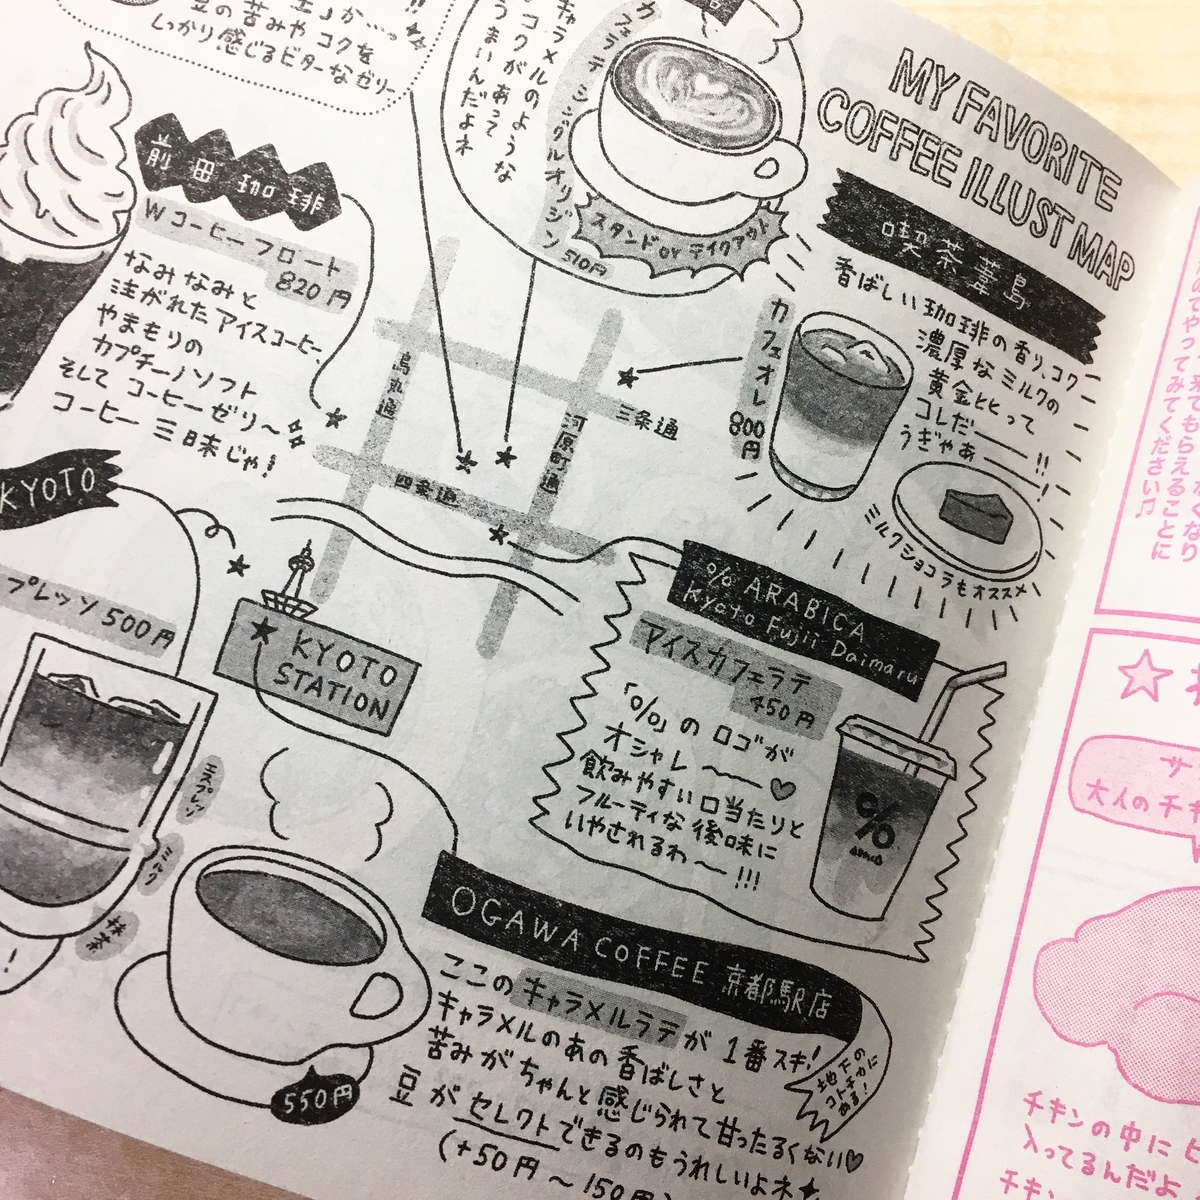 MY FAVORITE
COFFEE ILLUST MAP
豆の苦みやコクを
しっかり感じるビターなゼリー
カフェラテ シングルオリジン
510円
キャラメルのような
コクがあって
うまいんだよネ
スタンド or テイクアウト
前田珈琲
Wコーヒーフロート
820円
なみなみと
注がれたアイスコーヒー
やまもりの
カプチーノソフト
そして コーヒーゼリー〜
コーヒー三昧じゃ!
喫茶葦島
香ばしい珈琲の香り、コクー
濃厚なミルクの
黄金比とって
コレだ――!!
うぎゃあ――!
カフェオレ
800円
ミルクショコラもオススメ
烏丸通
河原町通
三条通
四条通
KYOTO
プレッソ 500円
エスプレッソ
ミルク
抹茶
KYOTO
STATION
% ARABICA
Kyoto Fujii Daimaru
アイスカフェラテ
450円
「%」の ロゴが
オシャレ 〜〜♡
飲みやすい口当たりと
フルーティな後味に
いやされるわ〜!!!
%
OGAWA COFFEE 京都駅店
ここのキャラメルラテが 1番スキ!
キャラメルのあの香ばしさと
苦みがちゃんと感じられて甘ったるくない♡
豆がセレクトできるのもうれしいよネ
(+50円〜150円)
地下の
コトチカに
あるよ!
550円
来てもらえることに
てみてください♫
大人のチキ
チキンの中にビ
入ってるんだよ
チキン